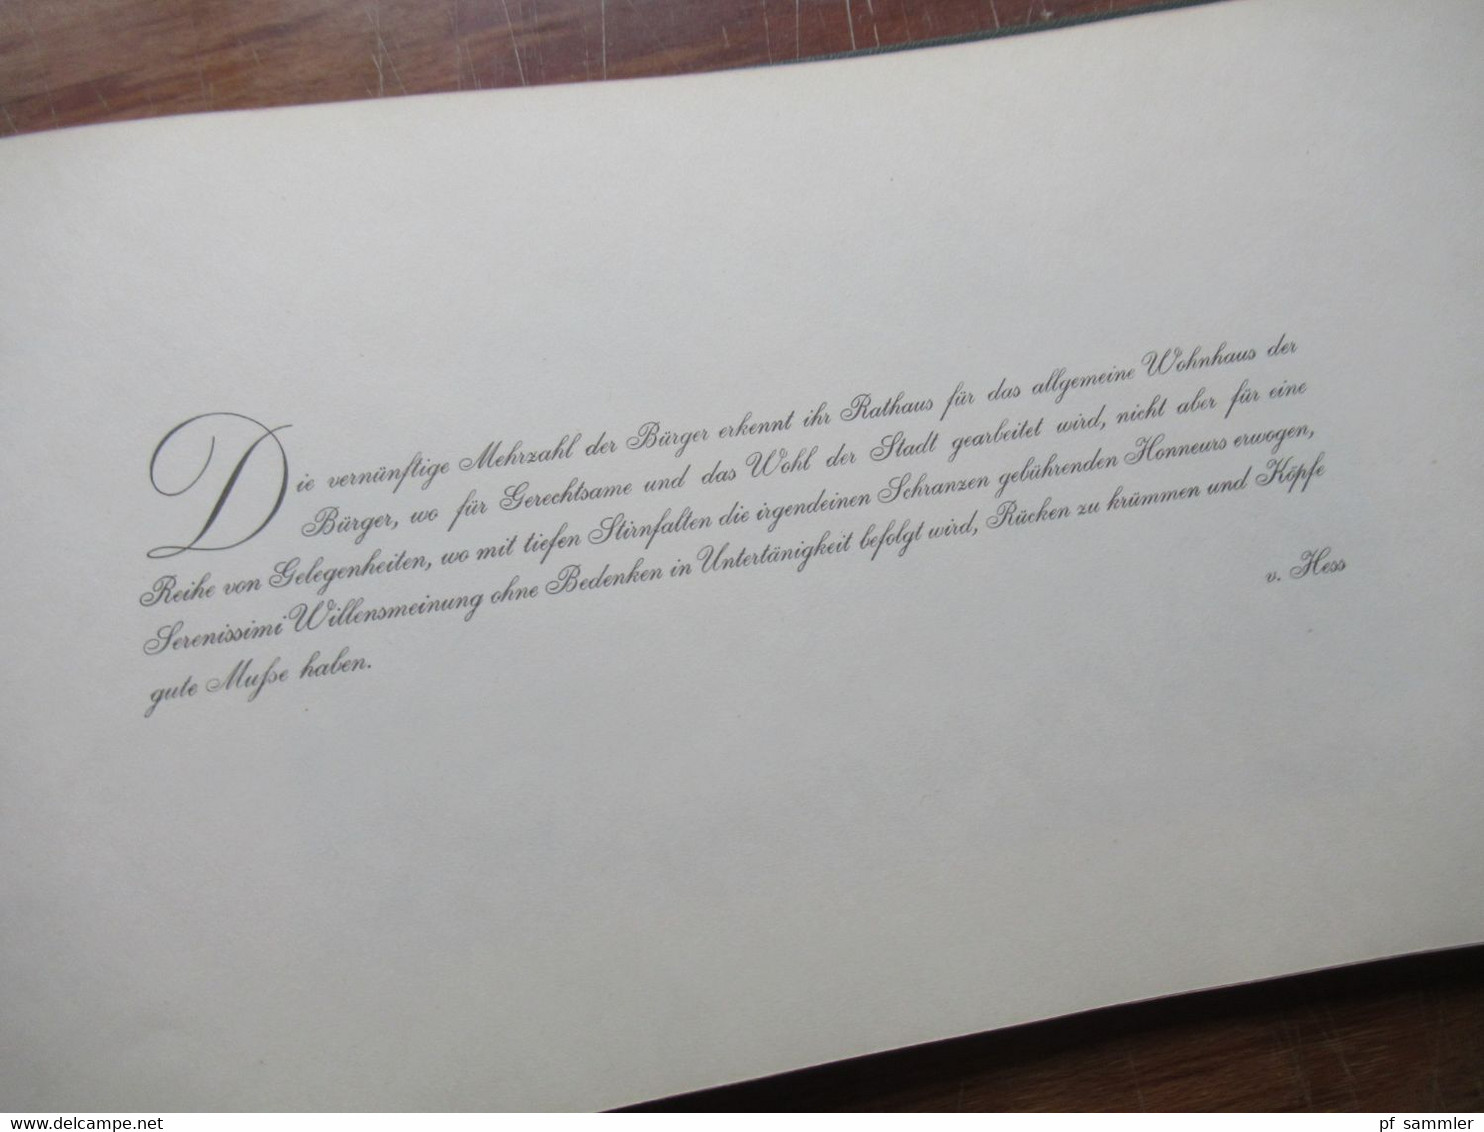 Die vernünftige Mehrzahl der Bürger erkennt ihr Rathaus für das allgemeine Wohnhaus der
Bürger, wo für Gerechtsame und das Wohl der Stadt gearbeitet wird, nicht aber für eine
Reihe von Gelegenheiten, wo mit tiefen Stirnfalten die irgendeinen Schranzen gebührenden Honneurs erwogen,
Serenissimi Willensmeinung ohne Bedenken in Untertänigkeit befolgt wird, Rücken zu krümmen und Köpfe
gute Muße haben.
v. Hess
www.delcampe.net
pf_sammler